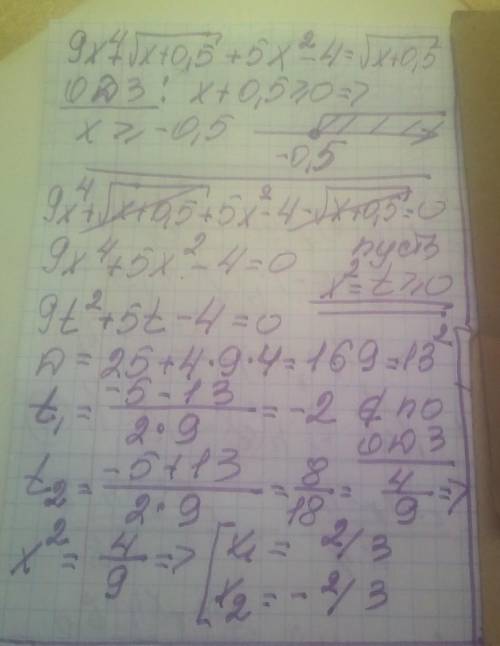 9x⁴+√(x+0,5)+5x²-4=√(x+0,5)
ОДЗ: x+0,5≥0=>
x≥-0,5
-0,5
9x⁴+√(x+0,5)+5x²-4-√(x+0,5)=0
9x⁴+5x²-4=0 пусть
x²=t≥0
9t²+5t-4=0
D=25+4·9·4=169=13²
t₁=(-5-13)/(2·9)=-2 ∉ по
ОДЗ
t₂=(-5+13)/(2·9)=8/18=4/9=>
x²=4/9=>[x₁=2/3
x₂=-2/3